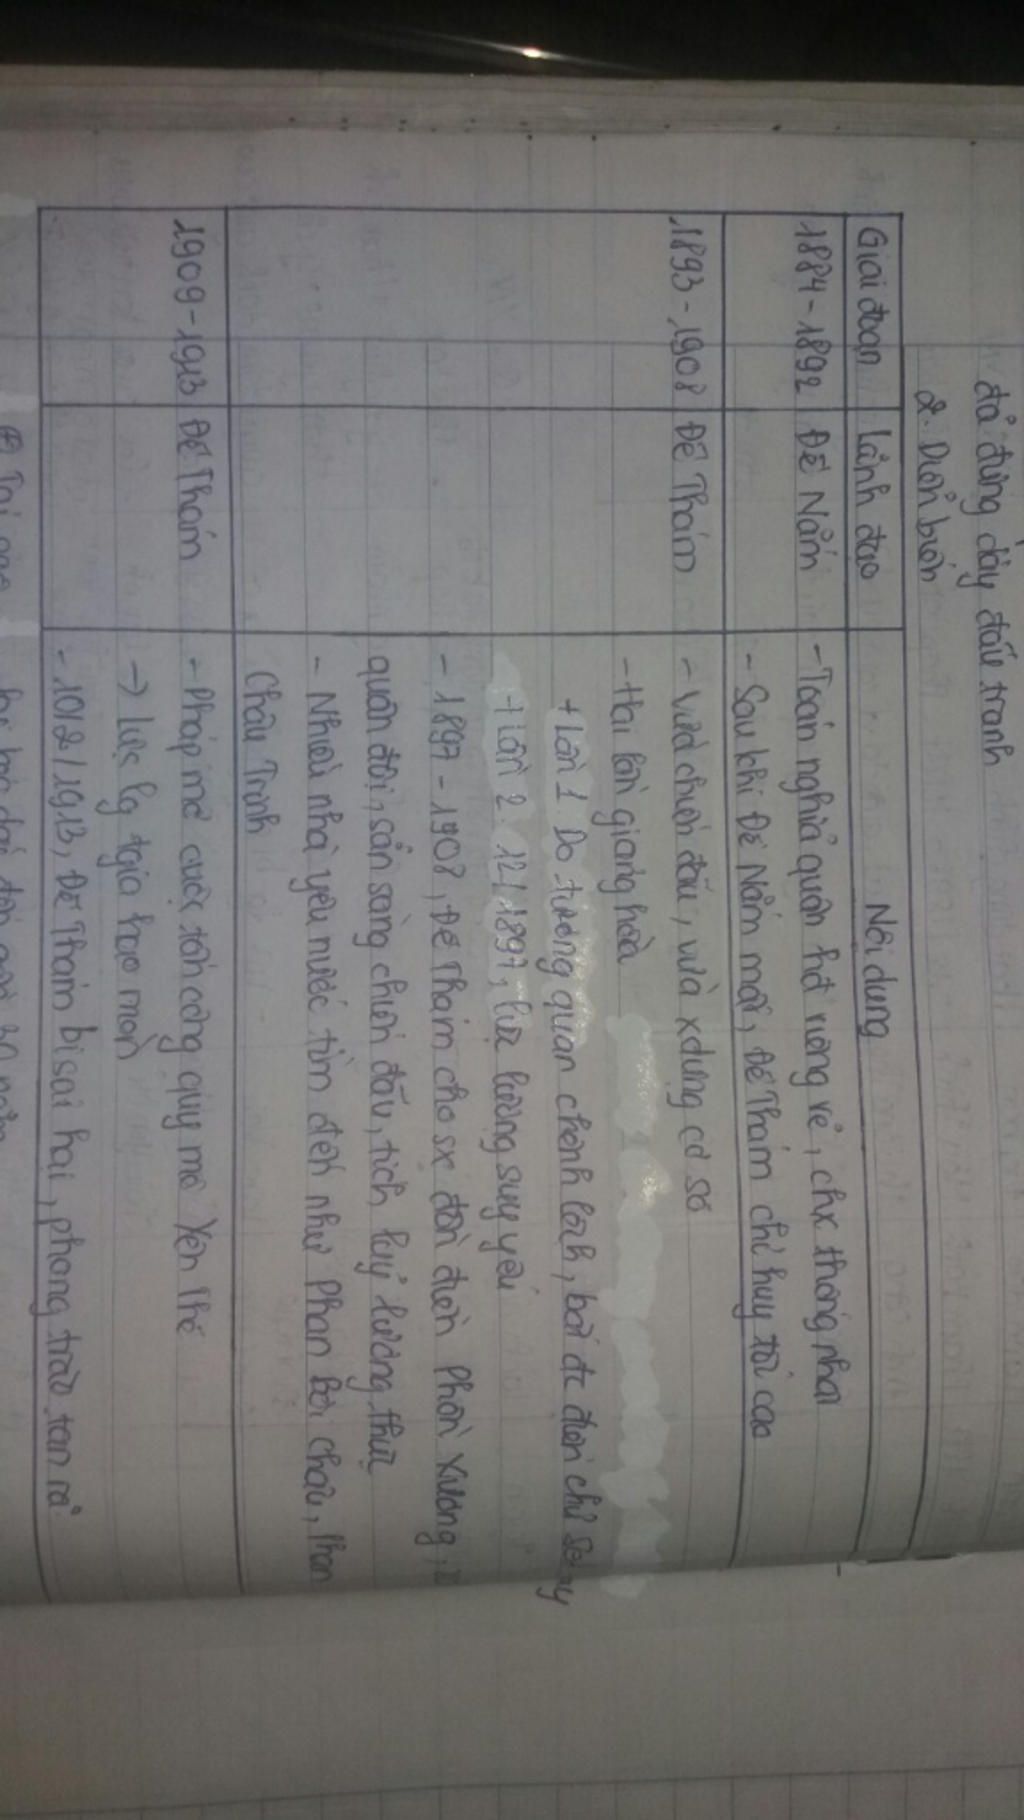 đã đứng dậy đấu tranh
2. Diễn biến
Giai đoạn Lãnh đạo Nội dung
1884-1892 Đề Nắm - Toán nghĩa quân hđ riêng rẽ, chx thống nhất
- Sau khi Đề Nắm mất, Đề Thám chỉ huy tối cao
1893-1908 Đề Thám - Vừa chiến đấu, vừa xdựng cơ sở
- Hai lần giảng hoà
+ Lần 1 Do tương quan chênh lệch, bắt đc điền chủ
+ Lần 2. 12/1897, lực lượng suy yếu
- 1897-1908, Đề Thám cho sx đồn điền Phồn Xương,
quân đội, sẵn sàng chiến đấu, tích luỹ lương thực
- Nhiều nhà yêu nước tìm đến như Phan Bội Châu, Phan
Châu Trinh
1909-1913 Đề Thám - Pháp mở cuộc tấn công quy mô Yên Thế
-> lực lg hao mòn
- 10/2/1913, Đề Thám bị sai hại, phong trào tan rã.